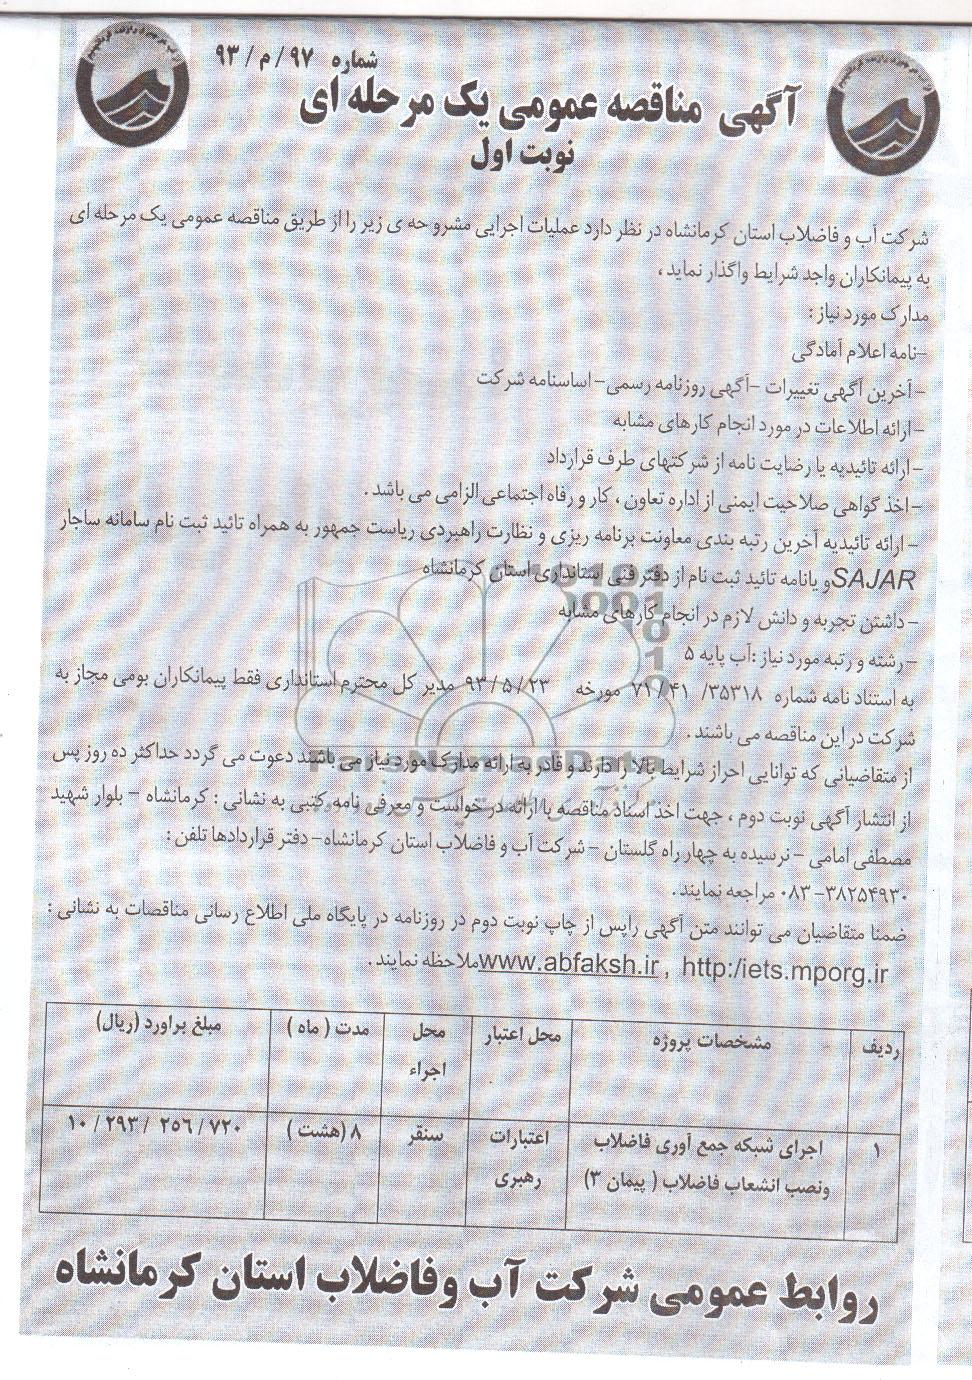 شماره ۹۷/م/۹۳
آگهی مناقصه عمومی یک مرحله ای
نوبت اول
شرکت آب و فاضلاب استان کرمانشاه در نظر دارد عملیات اجرایی مشروحه ی زیر را از طریق مناقصه عمومی یک مرحله ای
به پیمانکاران واجد شرایط واگذار نماید،
مدارک مورد نیاز :
-نامه اعلام آمادگی
-آخرین آگهی تغییرات -آگهی روزنامه رسمی- اساسنامه شرکت
-ارائه اطلاعات در مورد انجام کارهای مشابه
-ارائه تائیدیه یا رضایت نامه از شرکتهای طرف قرارداد
-اخذ گواهی صلاحیت ایمنی از اداره تعاون ، کار و رفاه اجتماعی الزامی می باشد .
- ارائه تائیدیه آخرین رتبه بندی معاونت برنامه ریزی و نظارت راهبردی ریاست جمهور به همراه تائید ثبت نام سامانه ساجار
SAJAR و یا نامه تائید ثبت نام از دفتر فنی استانداری استان کرمانشاه
- داشتن تجربه و دانش لازم در انجام کارهای مشابه
- رشته و رتبه مورد نیاز :آب پایه ۵
به استناد نامه شماره ۷۱/۴۱/۳۵۳۱۸ مورخه ۹۳/۵/۲۳ مدیر کل محترم استانداری فقط پیمانکاران بومی مجاز به
شرکت در این مناقصه می باشند .
از متقاضیانی که توانایی احراز شرایط بالا را دارند و قادر به ارائه مدارک مورد نیاز می باشند دعوت می گردد حداکثر ده روز پس
از انتشار آگهی نوبت دوم ، جهت اخذ اسناد مناقصه با ارائه درخواست و معرفی نامه کتبی به نشانی : کرمانشاه - بلوار شهید
مصطفی امامی - نرسیده به چهار راه گلستان - شرکت آب و فاضلاب استان کرمانشاه- دفتر قراردادها تلفن :
۰۸۳-۳۸۲۵۴۹۳۰ مراجعه نمایند .
ضمنا متقاضیان می توانند متن آگهی راپس از چاپ نوبت دوم در روزنامه در پایگاه ملی اطلاع رسانی مناقصات به نشانی :
www.abfaksh.ir , http:/iets.mporg.ir ملاحظه نمایند .
ردیف مشخصات پروژه محل اعتبار محل اجراء مدت ( ماه ) مبلغ براورد (ریال)
۱ اجرای شبکه جمع آوری فاضلاب ونصب انشعاب فاضلاب ( پیمان ۳) اعتبارات رهبری سنقر ۸ (هشت ) ۱۰/۲۹۳/۲۵۶/۷۲۰
روابط عمومی شرکت آب وفاضلاب استان کرمانشاه
ParsNamadData